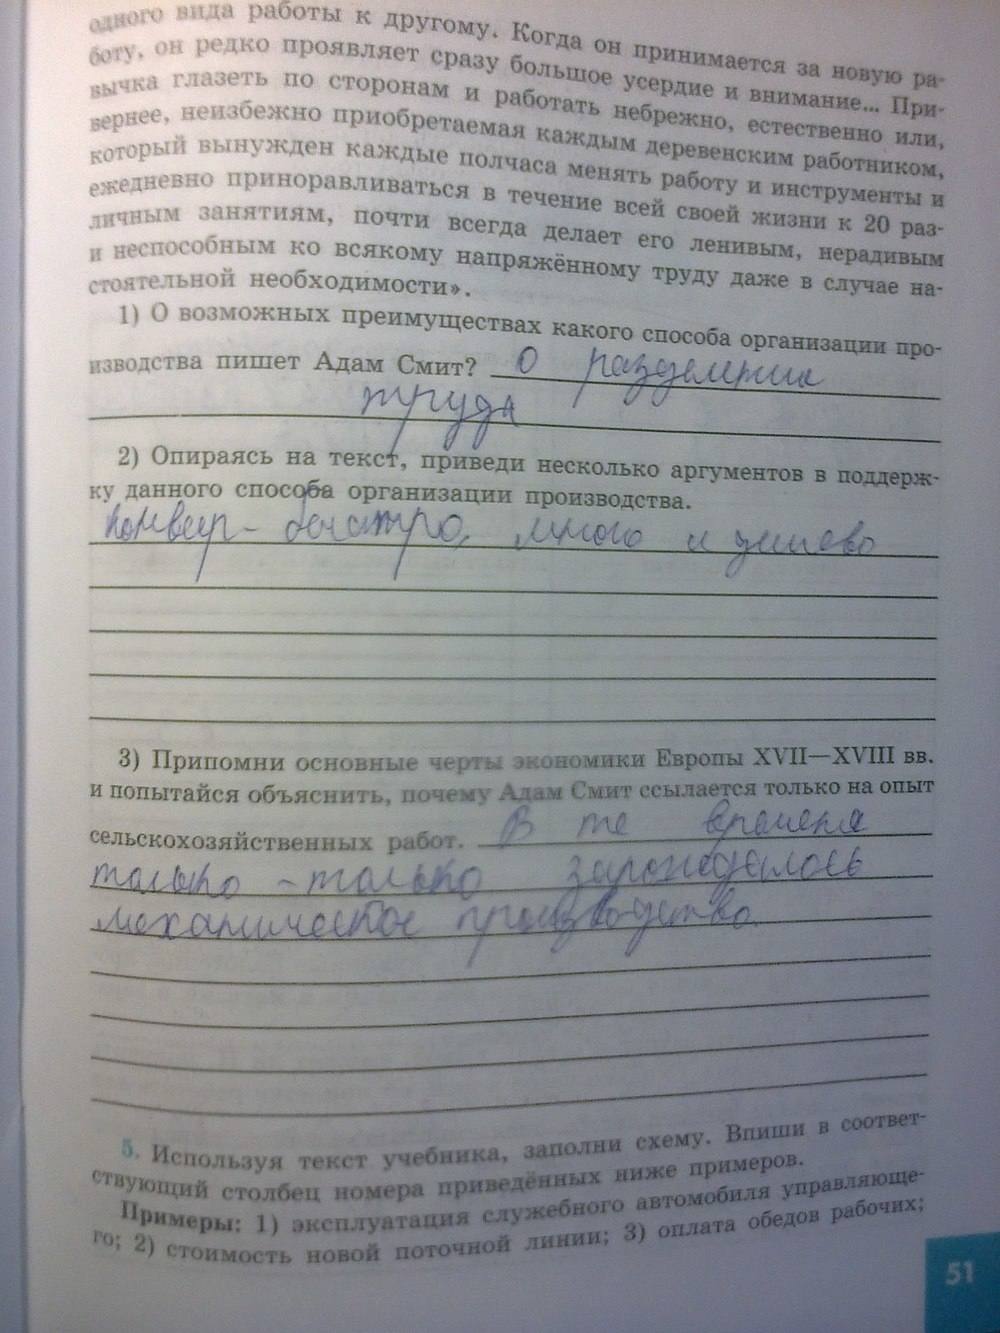 одного вида работы к другому. Когда он принимается за новую ра-
боту, он редко проявляет сразу большое усердие и внимание... При-
вычка глазеть по сторонам и работать небрежно, естественно или,
вернее, неизбежно приобретаемая каждым деревенским работником,
который вынужден каждые полчаса менять работу и инструменты и
ежедневно приноравливаться в течение всей своей жизни к 20 раз-
личным занятиям, почти всегда делает его ленивым, нерадивым
и неспособным ко всякому напряжённому труду даже в случае на-
стоятельной необходимости».
1) О возможных преимуществах какого способа организации про-
изводства пишет Адам Смит? О разделении
труда
2) Опираясь на текст, приведи несколько аргументов в поддерж-
ку данного способа организации производства.
конвеер - быстро, много и дешево
3) Припомни основные черты экономики Европы XVII—XVIII вв.
и попытайся объяснить, почему Адам Смит ссылается только на опыт
сельскохозяйственных работ. В те времена
только - только зарождалось
механическое производство.
5. Используя текст учебника, заполни схему. Впиши в соответ-
ствующий столбец номера приведённых ниже примеров.
Примеры: 1) эксплуатация служебного автомобиля управляюще-
го; 2) стоимость новой поточной линии; 3) оплата обедов рабочих;
51